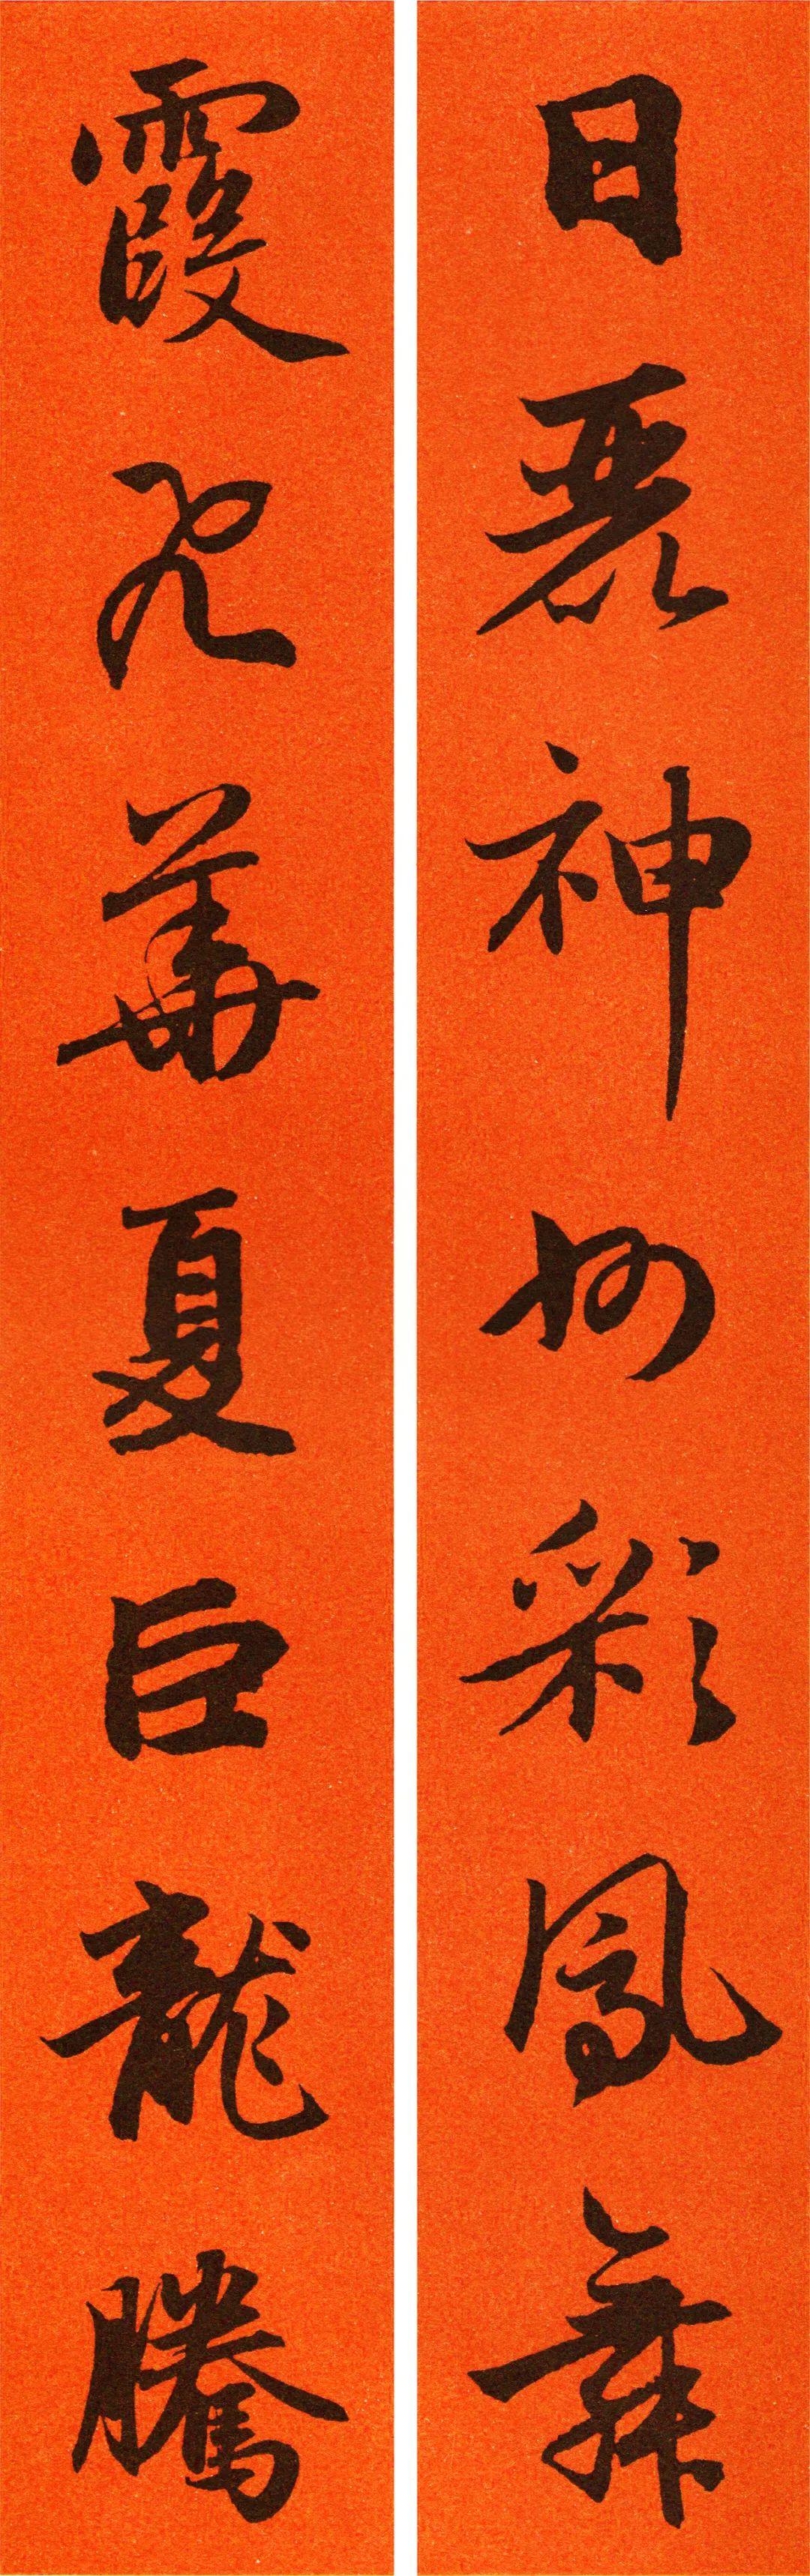 日麗神州彩鳳舞
霞飛華夏巨龍騰